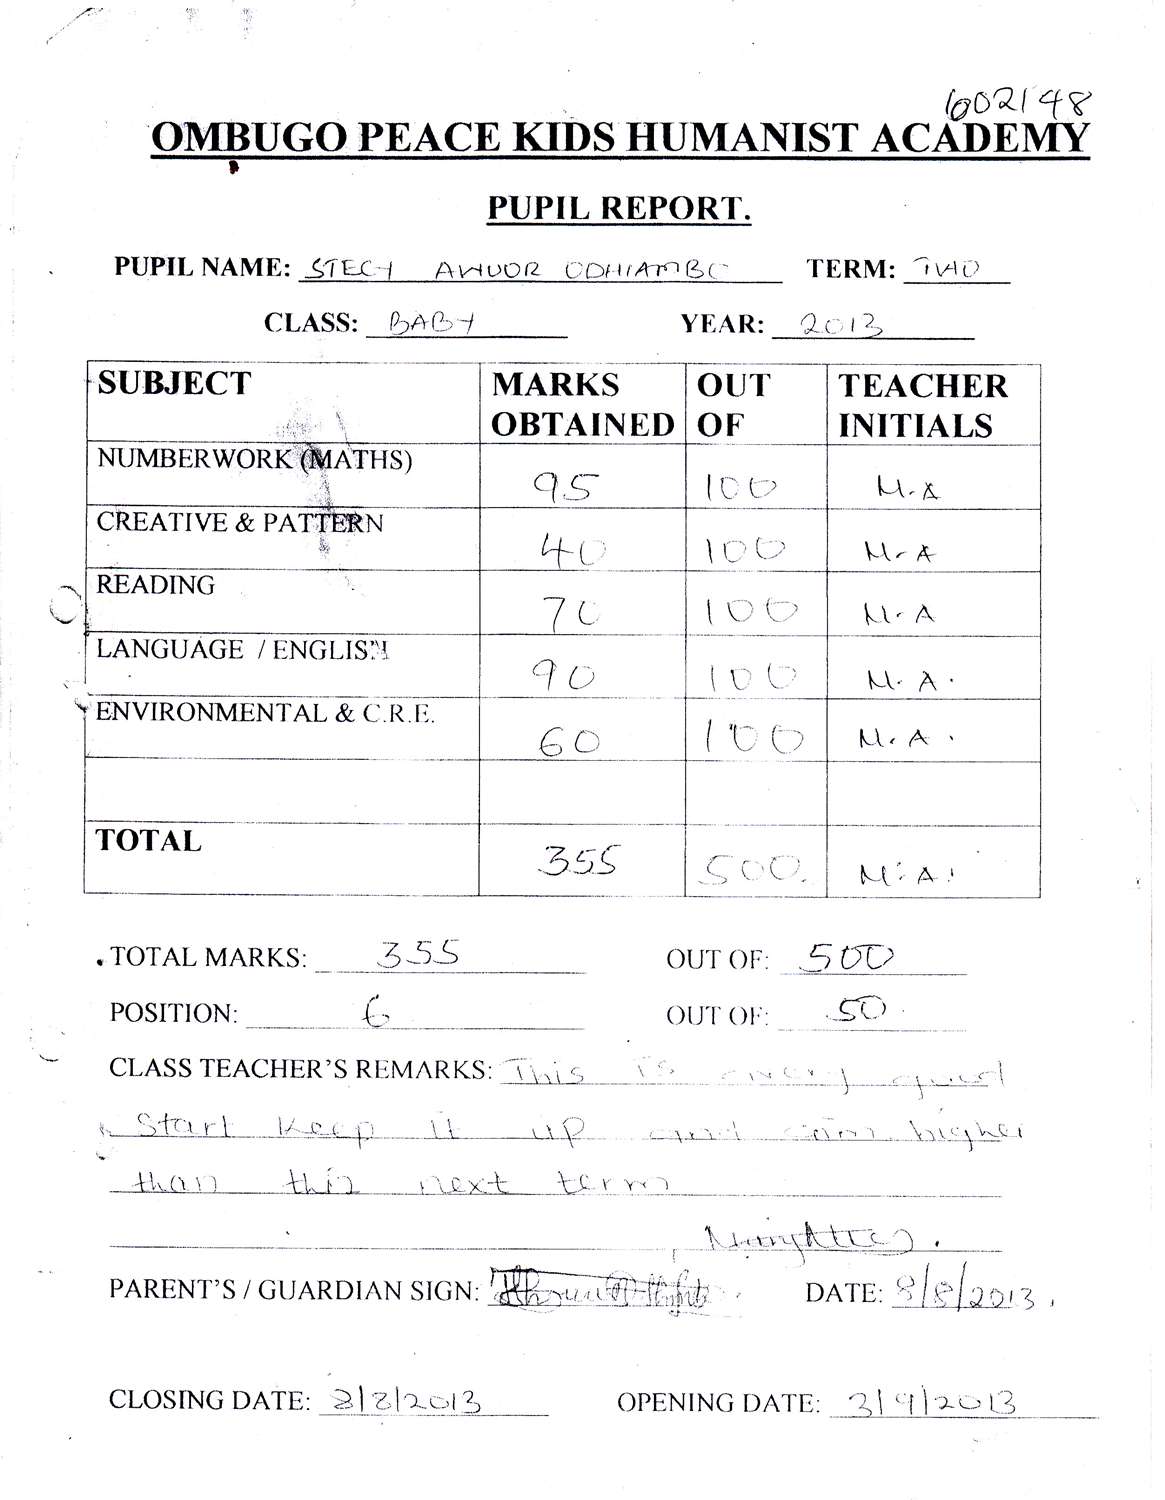 602148
OMBUGO PEACE KIDS HUMANIST ACADEMY
PUPIL REPORT.
PUPIL NAME: STECY AWUOR ODHIAMBO TERM: TWO
CLASS: BABY YEAR: 2013
SUBJECT MARKS OBTAINED OUT OF TEACHER INITIALS
NUMBERWORK (MATHS) 95 100 M.A
CREATIVE & PATTERN 40 100 M.A
READING 70 100 M.A
LANGUAGE / ENGLISH 90 100 M.A.
ENVIRONMENTAL & C.R.E. 60 100 M.A.
TOTAL 355 500. M.A.
TOTAL MARKS: 355 OUT OF: 500
POSITION: 6 OUT OF: 50
CLASS TEACHER'S REMARKS: This is
Start keep it up and aim higher
than this next term
PARENT'S / GUARDIAN SIGN: DATE: 8/8/2013
CLOSING DATE: 8/8/2013 OPENING DATE: 3/9/2013